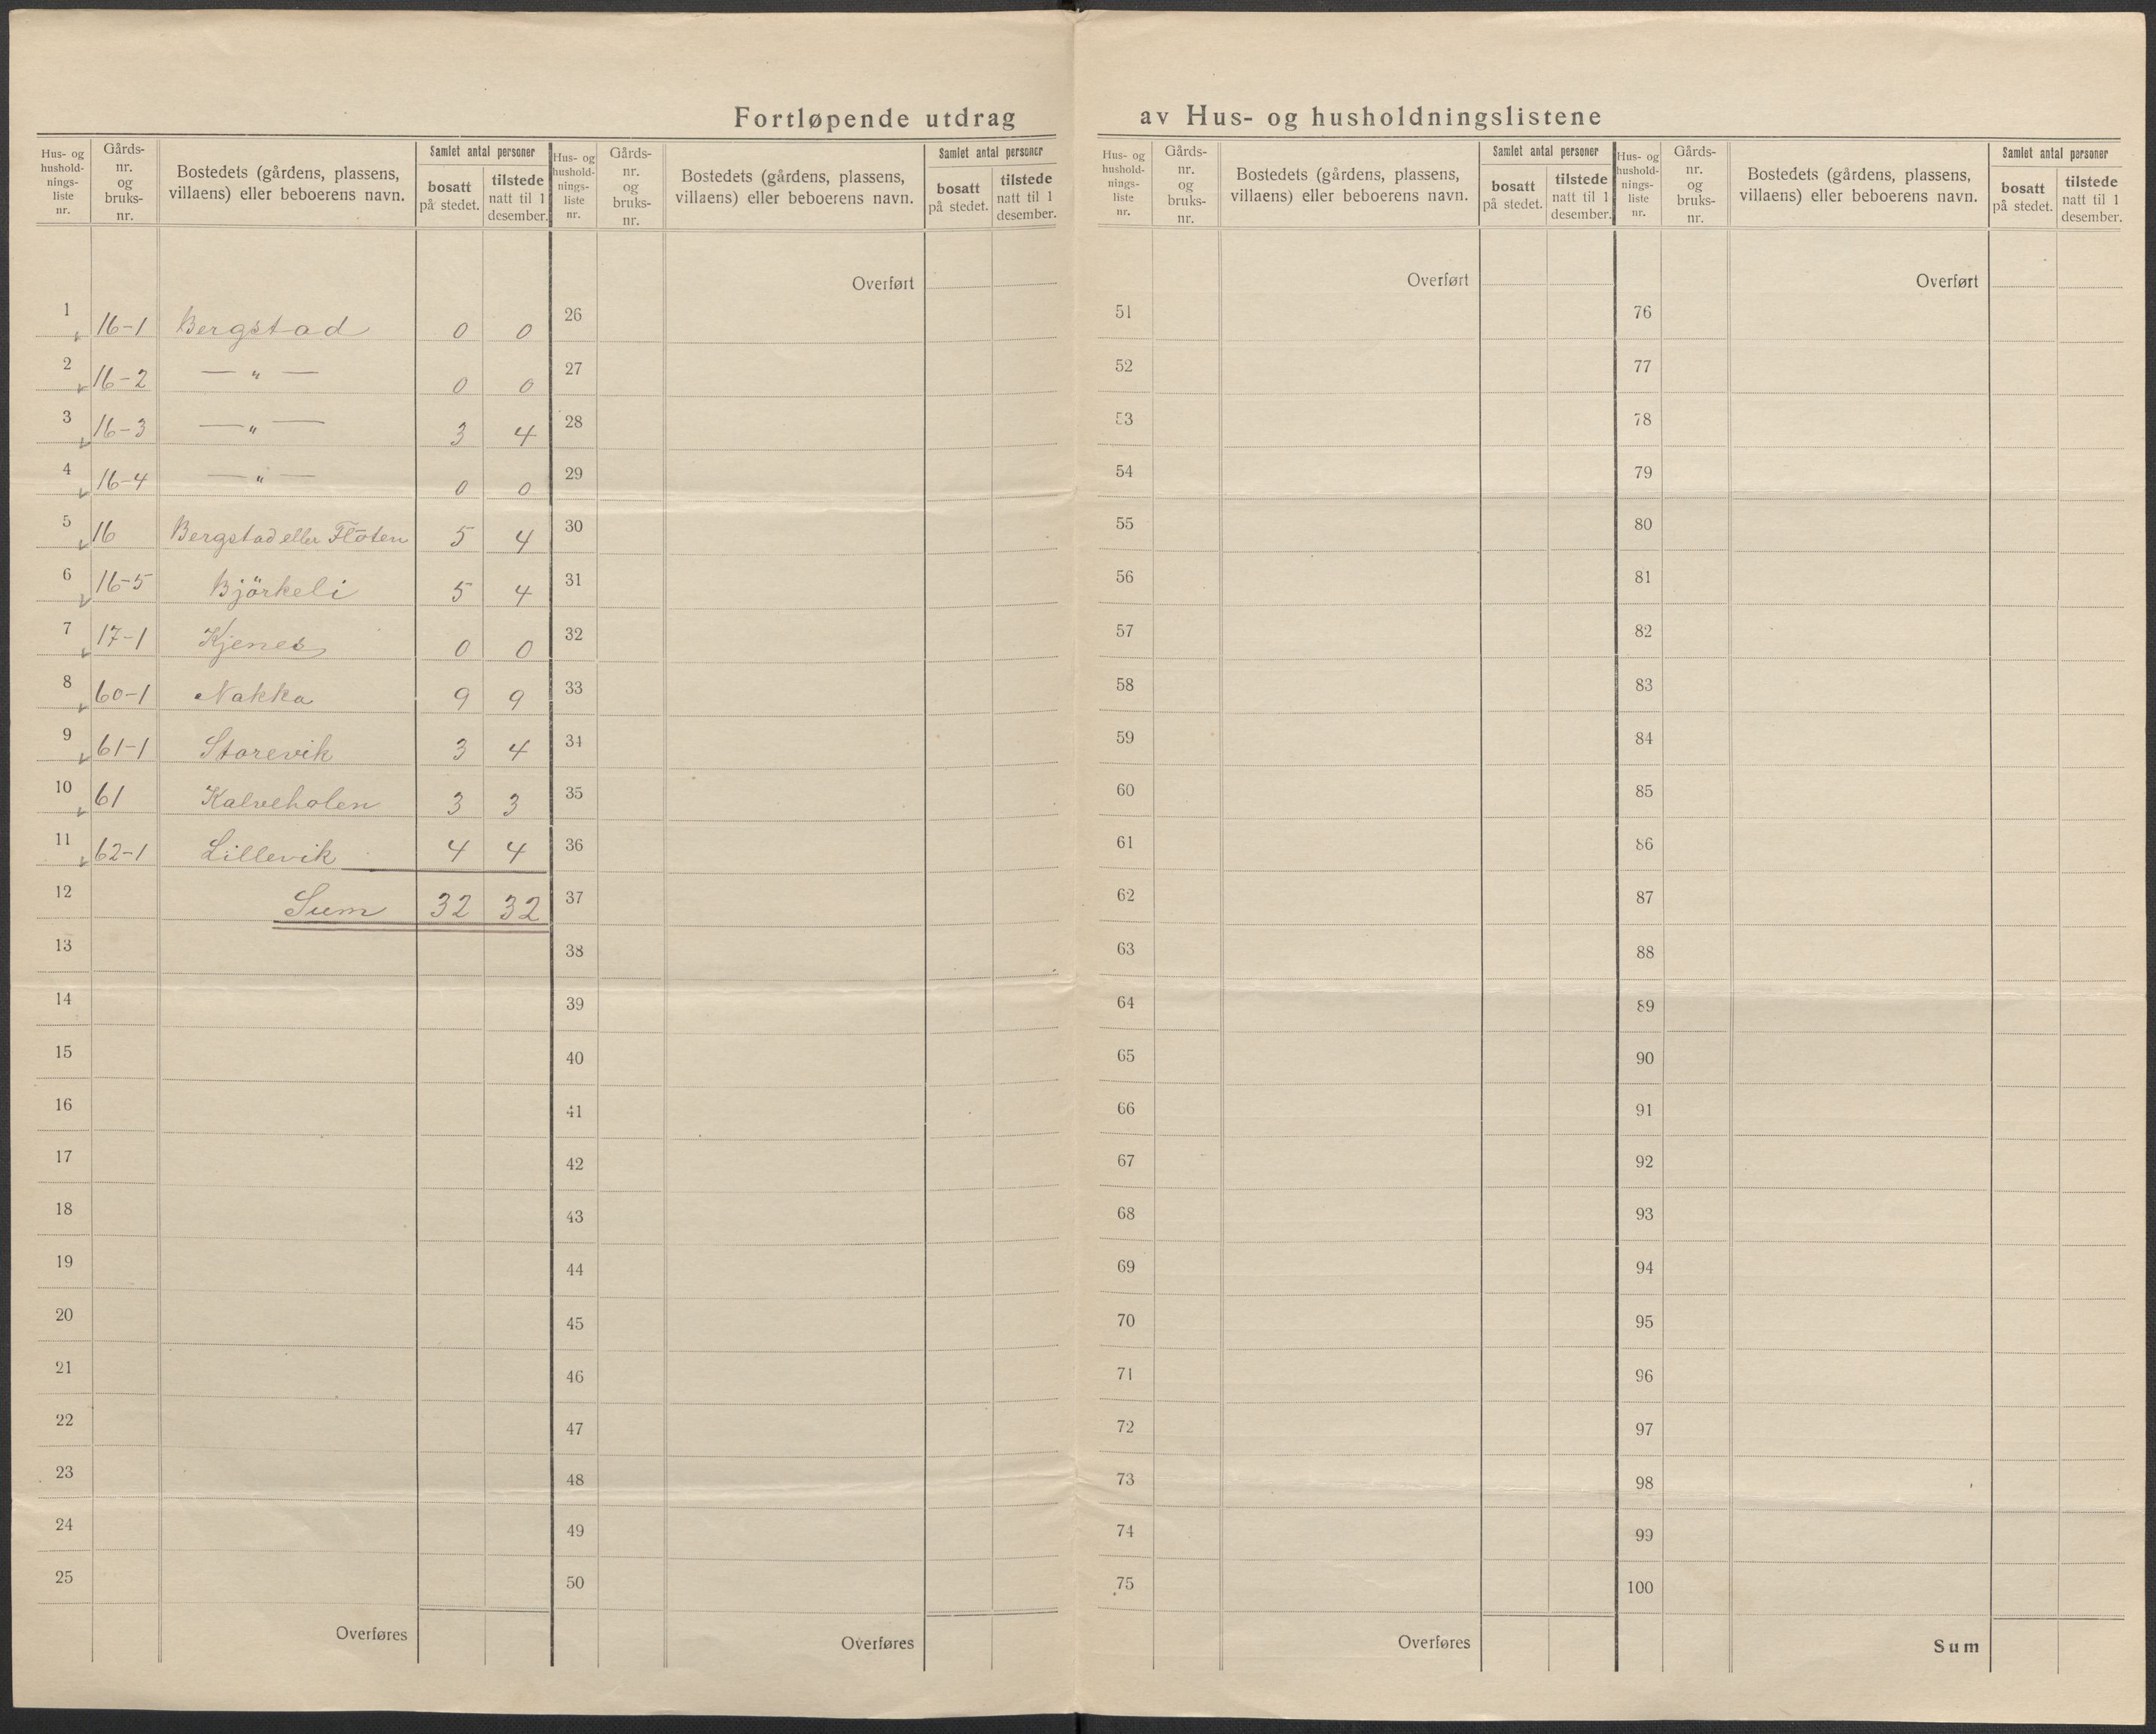 Fortløpende utdrag av Hus- og husholdningslistene
Hus- og hushold-nings-liste nr. | Gårds-nr. og bruks-nr. | Bostedets (gårdens, plassens, villaens) eller beboerens navn. | Samlet antal personer | bosatt på stedet. | tilstede natt til 1 desember.
1 16-1 Bergstad 0 0
2 16-2 — " — 0 0
3 16-3 — " — 3 4
4 16-4 — " — 0 0
5 16 Bergstad eller Flöten 5 4
6 16-5 Björkeli 5 4
7 17-1 Kjenes 0 0
8 60-1 Nakka 9 9
9 61-1 Storevik 3 4
10 61 Kalveholen 3 3
11 62-1 Lillevik 4 4
12 Sum 32 32
13
14
15
16
17
18
19
20
21
22
23
24
25
Overføres
Hus- og hushold-nings-liste nr. | Gårds-nr. og bruks-nr. | Bostedets (gårdens, plassens, villaens) eller beboerens navn. | Samlet antal personer | bosatt på stedet. | tilstede natt til 1 desember.
Overført
26
27
28
29
30
31
32
33
34
35
36
37
38
39
40
41
42
43
44
45
46
47
48
49
50
Overføres
Hus- og hushold-nings-liste nr. | Gårds-nr. og bruks-nr. | Bostedets (gårdens, plassens, villaens) eller beboerens navn. | Samlet antal personer | bosatt på stedet. | tilstede natt til 1 desember.
Overført
51
52
53
54
55
56
57
58
59
60
61
62
63
64
65
66
67
68
69
70
71
72
73
74
75
Overføres
Hus- og hushold-nings-liste nr. | Gårds-nr. og bruks-nr. | Bostedets (gårdens, plassens, villaens) eller beboerens navn. | Samlet antal personer | bosatt på stedet. | tilstede natt til 1 desember.
Overført
76
77
78
79
80
81
82
83
84
85
86
87
88
89
90
91
92
93
94
95
96
97
98
99
100
Sum